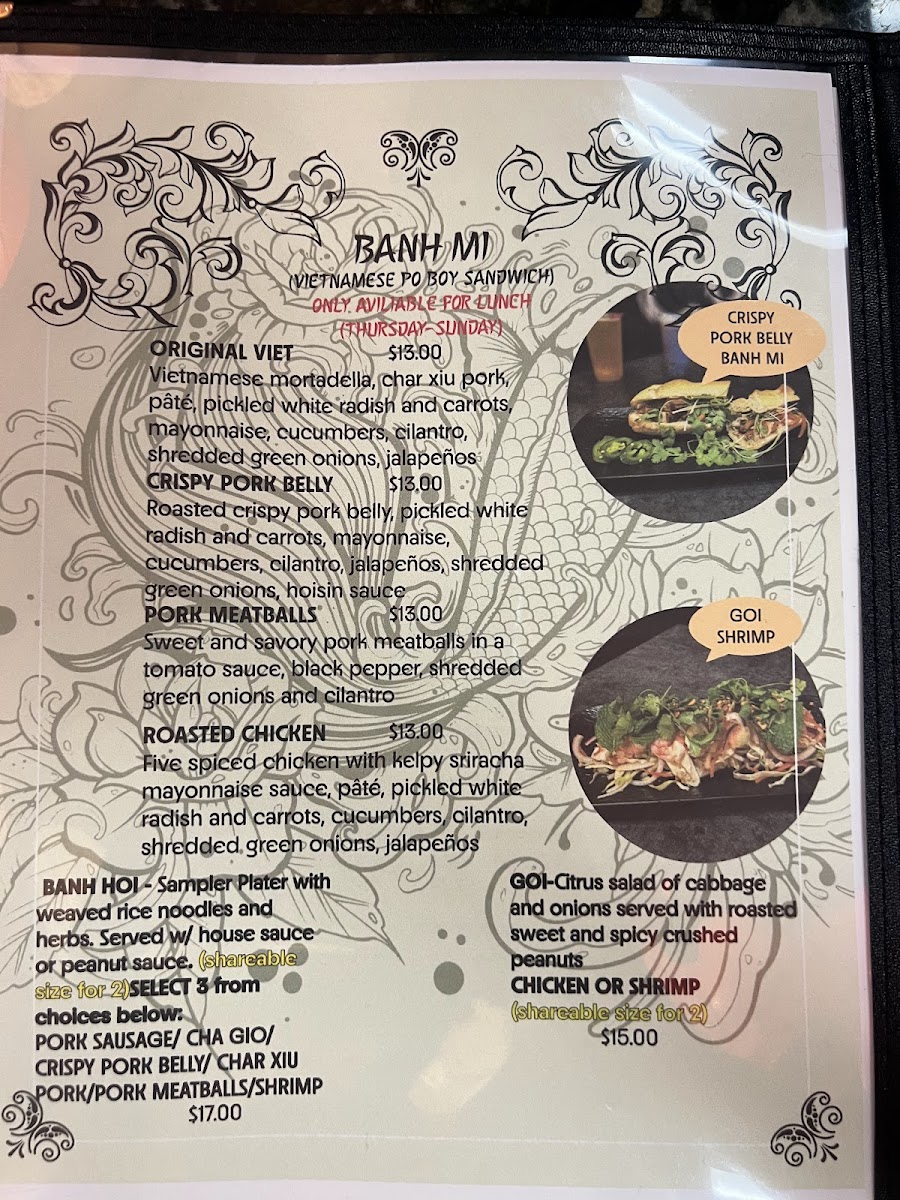 BANH MI
(VIETNAMESE PO BOY SANDWICH)
ONLY AVILIABLE FOR LUNCH
(THURSDAY-SUNDAY)
ORIGINAL VIET $13.00
Vietnamese mortadella, char xiu pork,
pâté, pickled white radish and carrots,
mayonnaise, cucumbers, cilantro,
shredded green onions, jalapeños
CRISPY PORK BELLY $13.00
Roasted crispy pork belly, pickled white
radish and carrots, mayonnaise,
cucumbers, cilantro, jalapeños, shredded
green onions, hoisin sauce
PORK MEATBALLS $13.00
Sweet and savory pork meatballs in a
tomato sauce, black pepper, shredded
green onions and cilantro
ROASTED CHICKEN $13.00
Five spiced chicken with kelpy sriracha
mayonnaise sauce, pâté, pickled white
radish and carrots, cucumbers, cilantro,
shredded green onions, jalapeños
CRISPY
PORK BELLY
BANH MI
GOI
SHRIMP
BANH HOI - Sampler Plater with
weaved rice noodles and
herbs. Served w/ house sauce
or peanut sauce. (shareable
size for 2)SELECT 3 from
choices below:
PORK SAUSAGE/ CHA GIO/
CRISPY PORK BELLY/ CHAR XIU
PORK/PORK MEATBALLS/SHRIMP
$17.00
GOI-Citrus salad of cabbage
and onions served with roasted
sweet and spicy crushed
peanuts
CHICKEN OR SHRIMP
(shareable size for 2)
$15.00